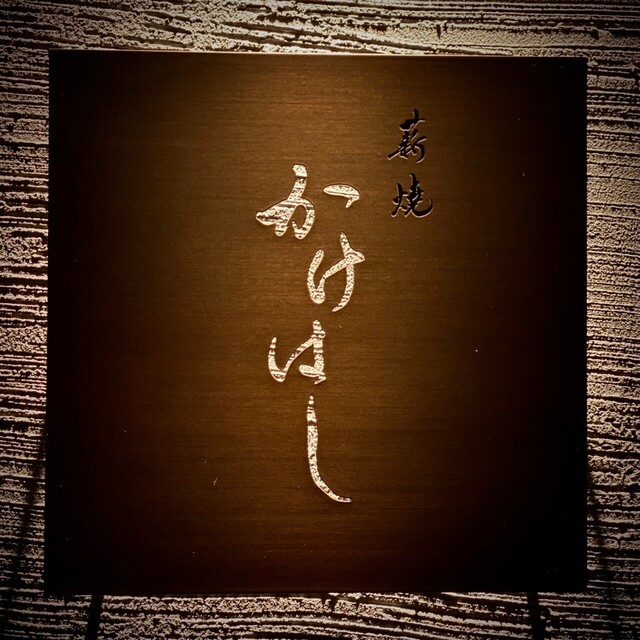 薪焼
かけはし